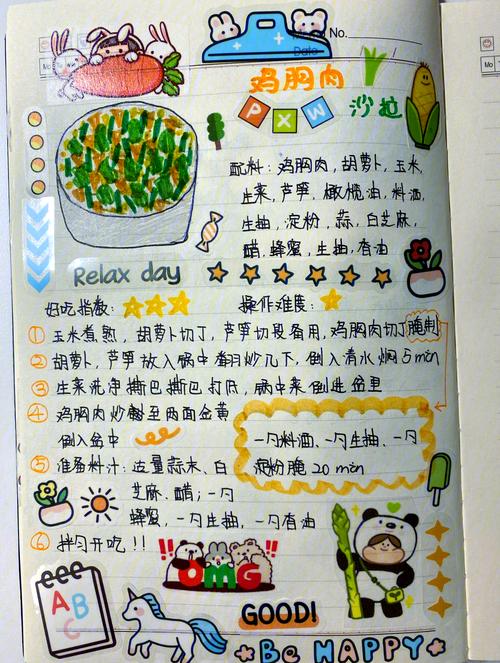 No.
Date
Mo
Mo
鸡胸肉
PXW
沙拉
配料：鸡胸肉，胡萝卜，玉米，
生菜，芦笋，橄榄油，料酒，
生抽，淀粉，蒜，白芝麻，
醋，蜂蜜，生抽，香油
Relax day
好吃指数：
操作难度：
① 玉米煮熟，胡萝卜切丁，芦笋切段备用，鸡胸肉切丁腌制
② 胡萝卜，芦笋放入锅中翻炒几下，倒入清水焖5min
③ 生菜洗净撕巴撕巴打底，锅中菜倒进盆里
④ 鸡胸肉炒翻至两面金黄
倒入盆中
一勺料酒、一勺生抽、一勺
淀粉腌20 min
⑤ 准备料汁：适量蒜末、白
芝麻．醋；一勺
蜂蜜，一勺生抽，一勺香油
⑥ 拌匀开吃!!
!!OMG!!
ABC
GOOD!
Be HAPPY